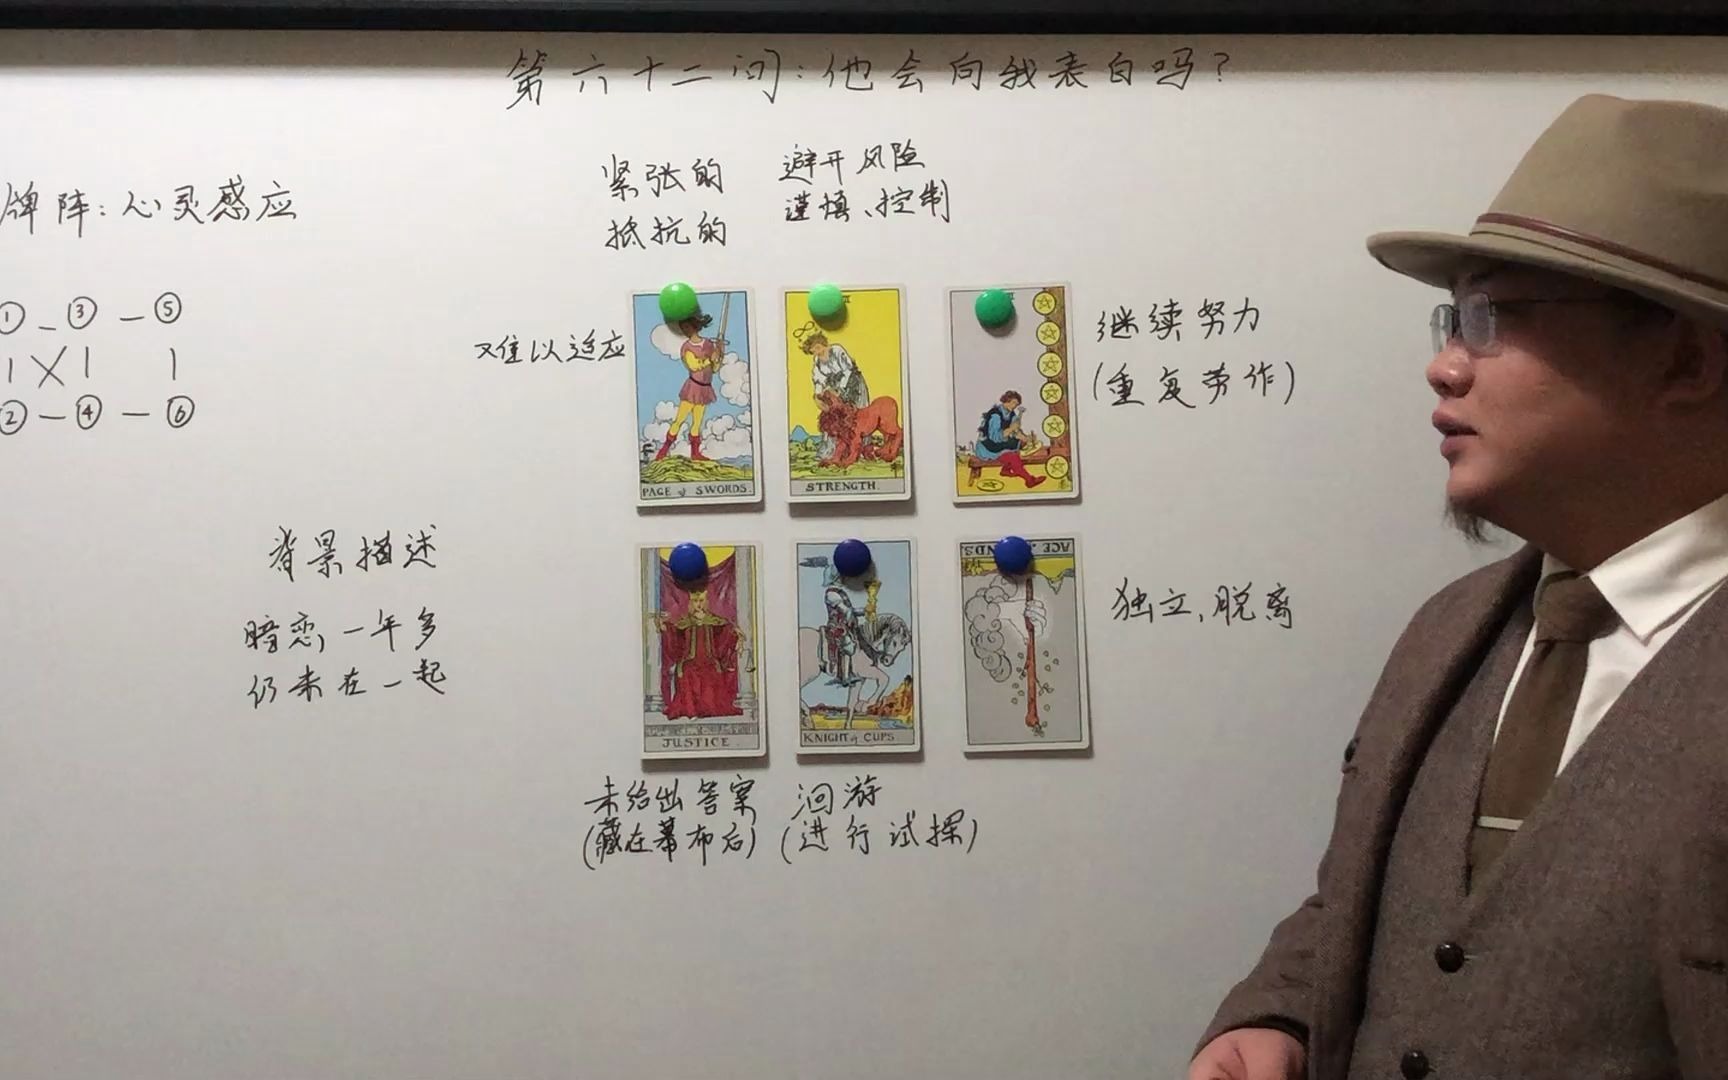 第六十二问：他会向我表白吗？
牌阵：心灵感应
① - ③ - ⑤
| X | |
② - ④ - ⑥
紧张的
抵抗的
避开风险
谨慎、控制
难以适应
继续努力
(重复劳作)
PAGE of SWORDS.
STRENGTH.
背景描述
暗恋，一年多
仍未在一起
独立，脱离
ACE of WANDS.
JUSTICE.
KNIGHT of CUPS.
未给出答案
(藏在幕布后)
洄游
(进行试探)